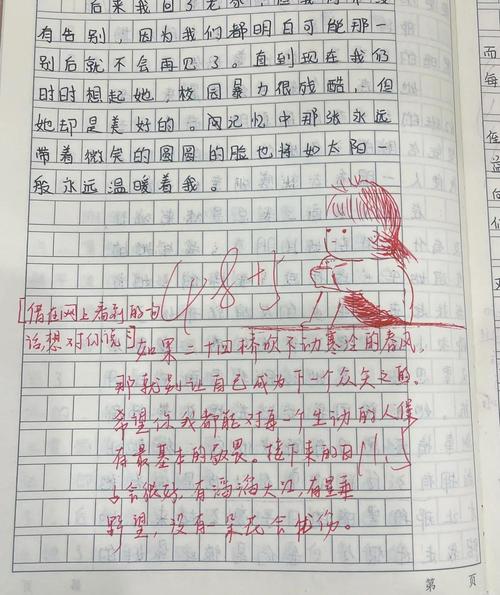 后来我回了老家，
有告别，因为我们都明白可能那一
别后就不会再见了。直到现在我仍
时时想起她，校园暴力很残酷，但
她却是美好的。而记忆中那张永远
带着微笑的圆圆的脸也将如太阳一
般永远温暖着我。
48+5
[借在网上看到的句
话想对你说]如果二十四桥吹不动寒冷的春风，
那就别让自己成为下一个众矢之的。
希望你我都能对每一个生动的人保
有最基本的敬畏。接下来的日
子会很好，有滔滔大江，有星垂
野望，没有一朵花会忧伤。
11.5
而
每
第 页